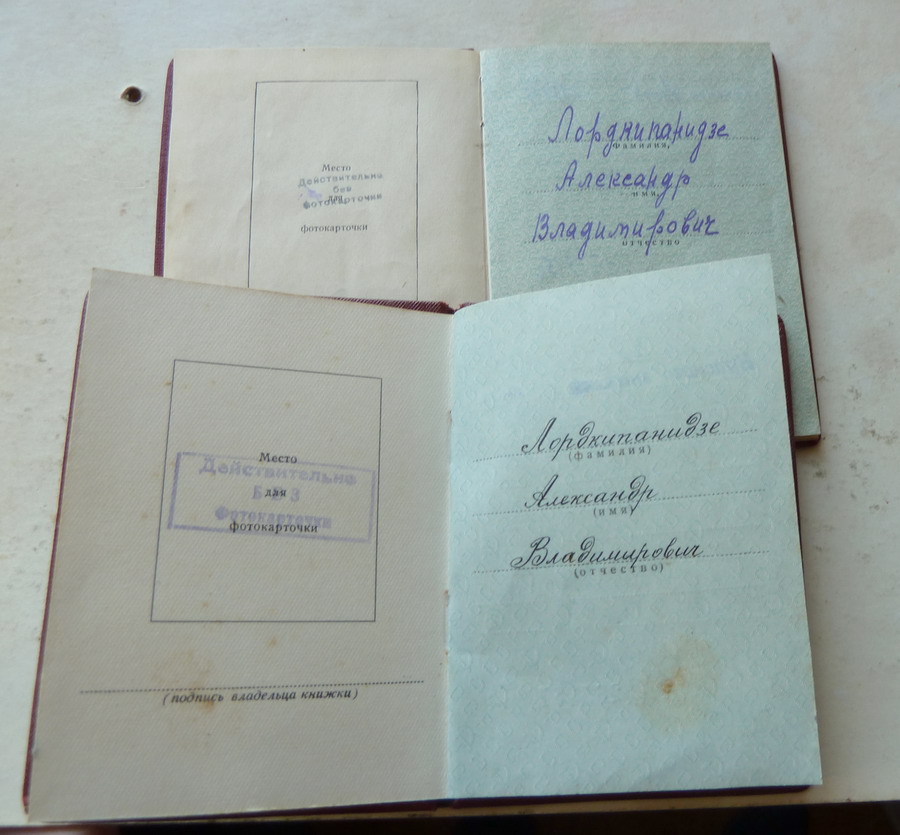 Место
Действительна
без
для
фотокарточки
фотокарточки
Лордкипанидзе
фамилия,
Александр
имя,
Владимирович
отчество
Место
Действительна
БЕЗ
для
фотокарточки
фотокарточки
(подпись владельца книжки)
Лордкипанидзе
(фамилия)
Александр
(имя)
Владимирович
(отчество)